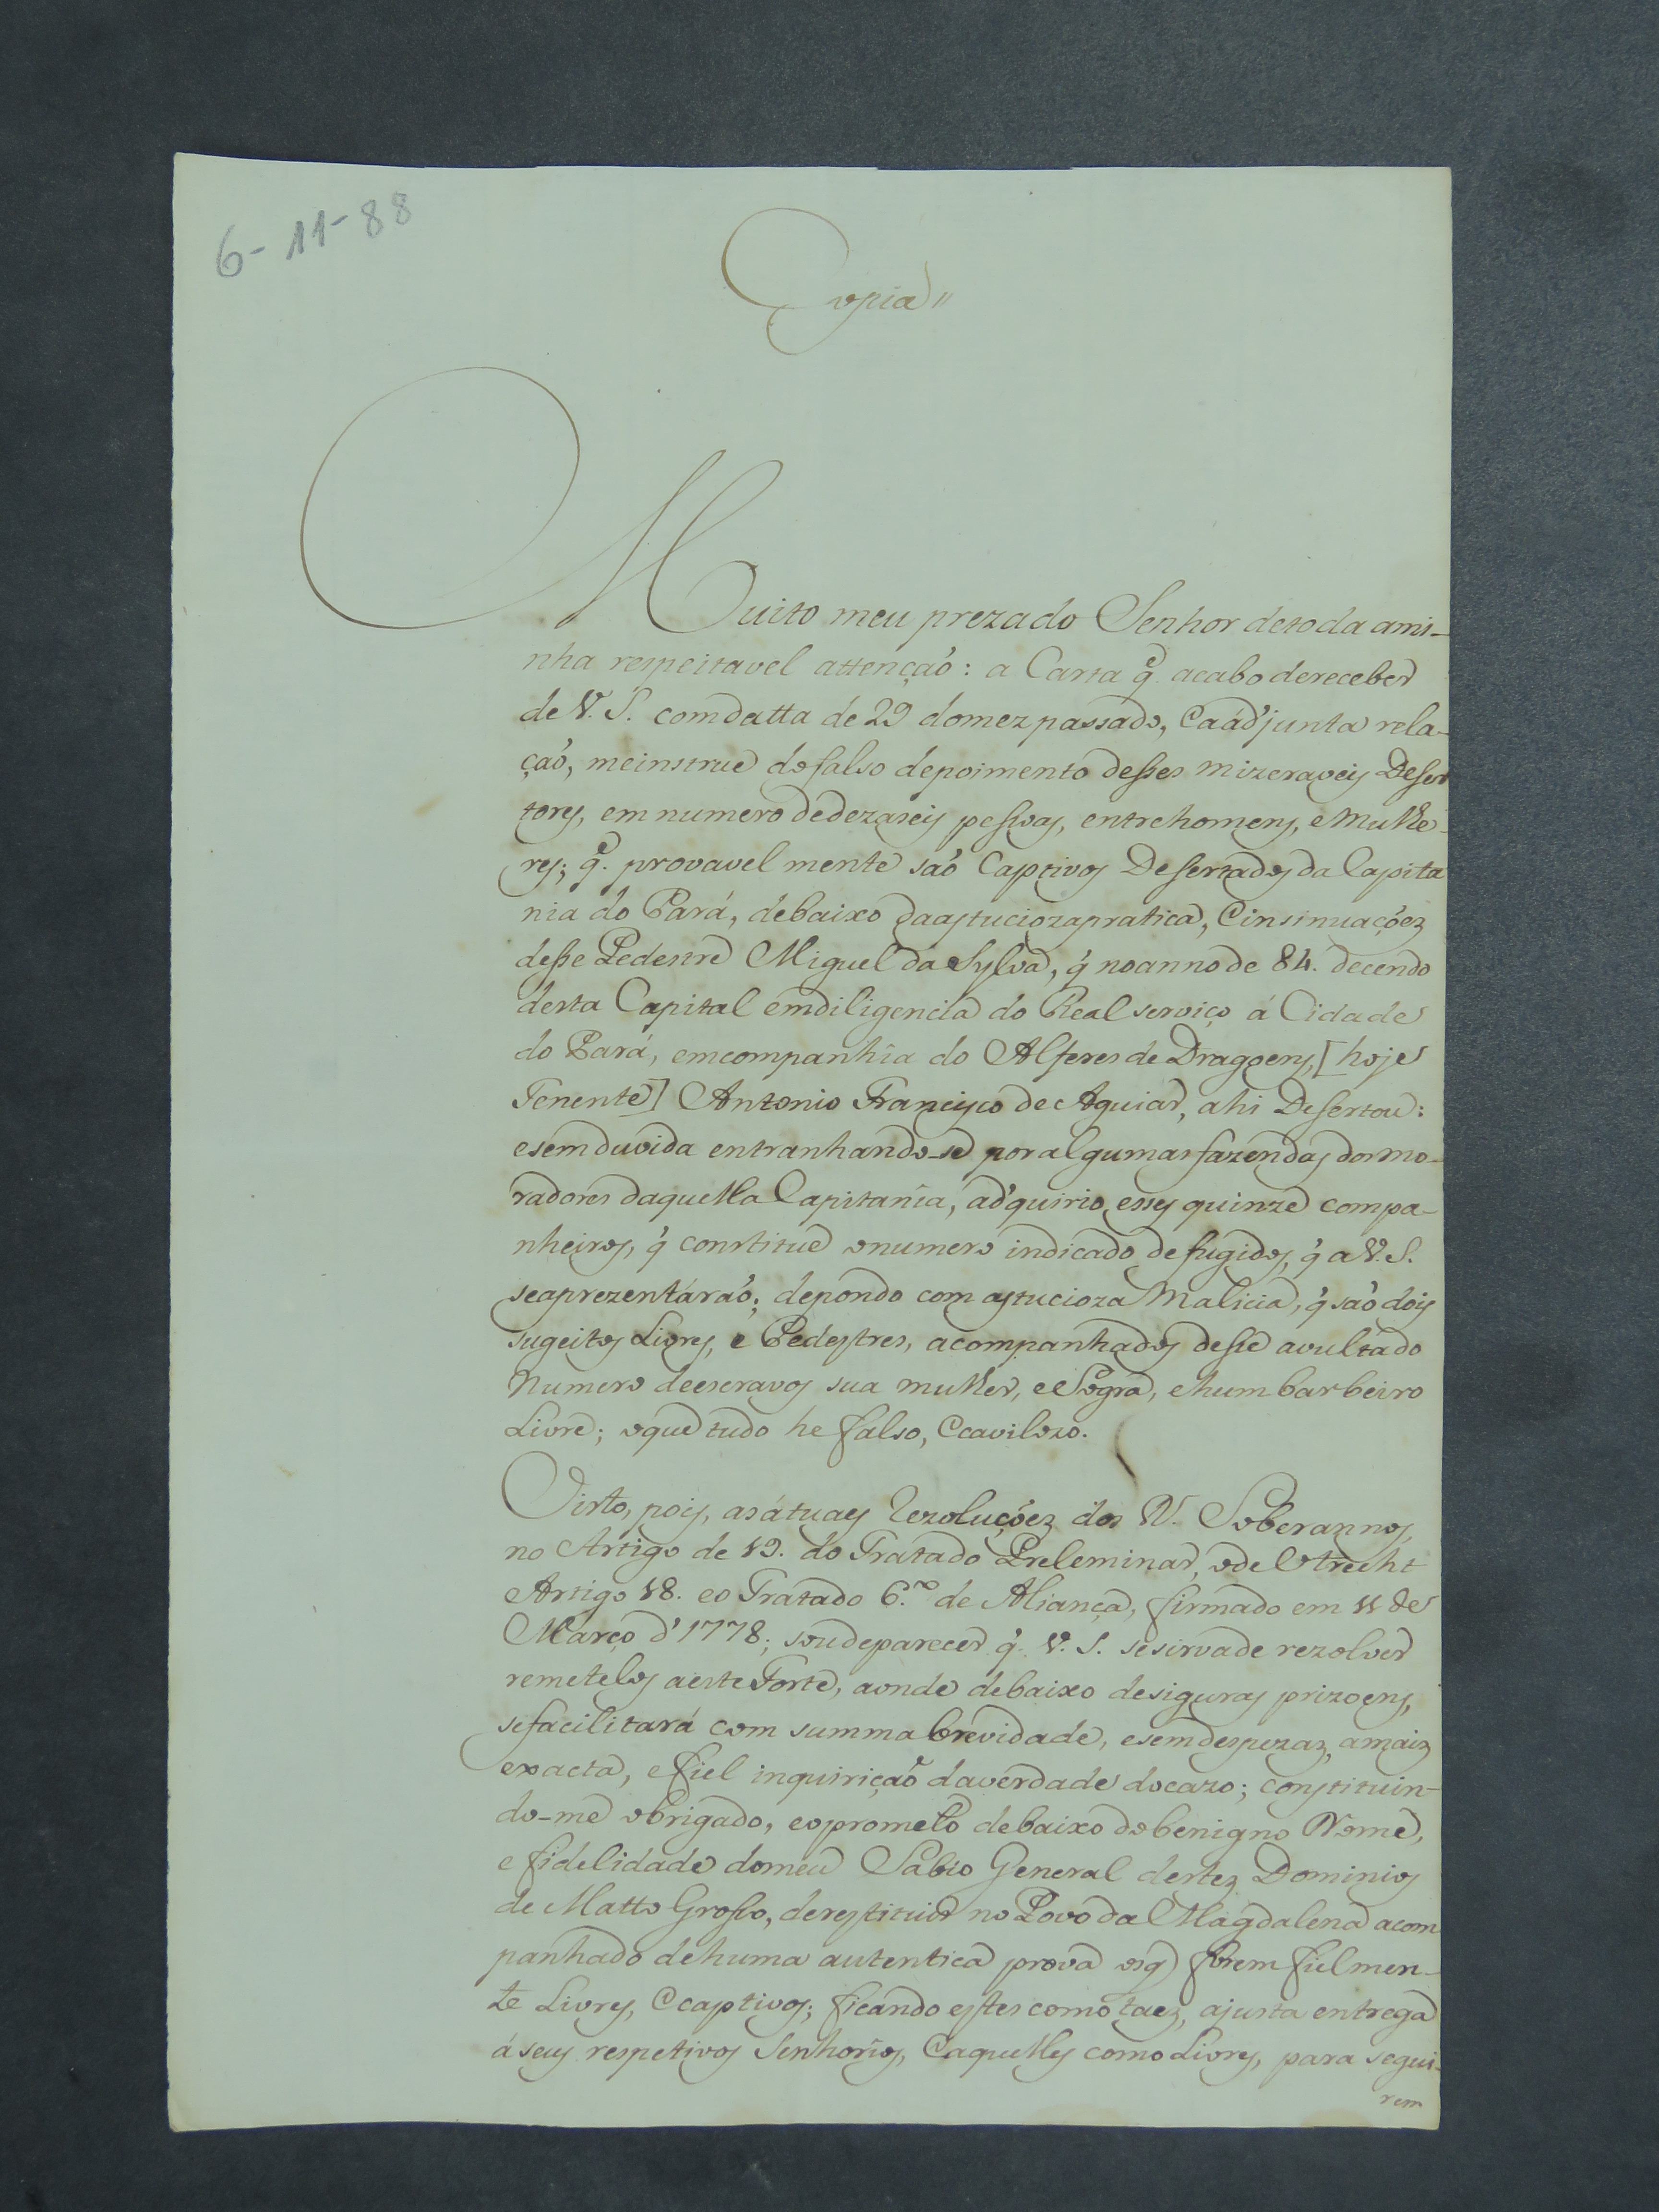 6-11-88
Copia//
Muito meu prezado Senhor detoda ami-
nha respeitavel attençaõ: a Carta q̃ acabo dereceber
de V. S. comdatta de 29 domez passado, eaádjunta rela-
çaõ, meinstrue dofalso depoimento desses mizeraveis Deser
tores, em numero dedezaseis pessoas, entrehomens, eMulhe-
res; q̃. provavelmente saõ Captivos Desertados da Capita
nia do Pará, debaixo daastuciozapratica, einsinuaçoẽs
desse Pedestre Miguel da Sylva, q̃ noanno de 84. decendo
desta Capital emdiligencia do Real serviço á Cidade
do Pará, emcompanhia do Alferes de Dragoens, [hoje
Tenente] Antonio Francisco de Aguiar, ahi Desertou:
esemduvida entranhando-se por algumas fazendas dos mo-
radores daquella Capitania, adquirio esses quinze compa-
nheiros, q̃ constitue onumero indicado defugidos, q̃ a V. S.
seaprezentáraõ; depondo com astucioza Malicia, q̃ saõ dois
sugeitos Livres, e Pedestres, acompanhados desse avultado
Numero deescravos sua mulher, eSogra, ehum barbeiro
Livre; oque tudo he falso, ecavilozo.
Visto, pois, asátuaes Rezoluçoẽs dos N. Soberannos,
no Artigo de 19. do Tratado Preleminar, ode Utrecht
Artigo 18. eo Tratado 6.º de Aliança, firmado em 11 de
Março d'1778; soudeparecer q̃. V. S. sesirvade rezolver
remetelos aeste Forte, aonde debaixo desiguras prizoens,
sefacilitará com summa brevidade, esemdespezas, amais
exacta, efiel inquiriçaõ daverdade docazo; constituin-
do-me obrigado, eoprometo debaixo dobenigno Nome,
e fidelidade domeu Sabio General destes Dominios
de Matto Grosso, derestituir no Povo da Magdalena acom
panhado dehuma autentica prova osq̃ forem fielmen-
te Livres, ecaptivos; ficando estes como taes, ajusta entrega
áseus respetivos Senhorios, eaquelles como Livres, para segui-
rem